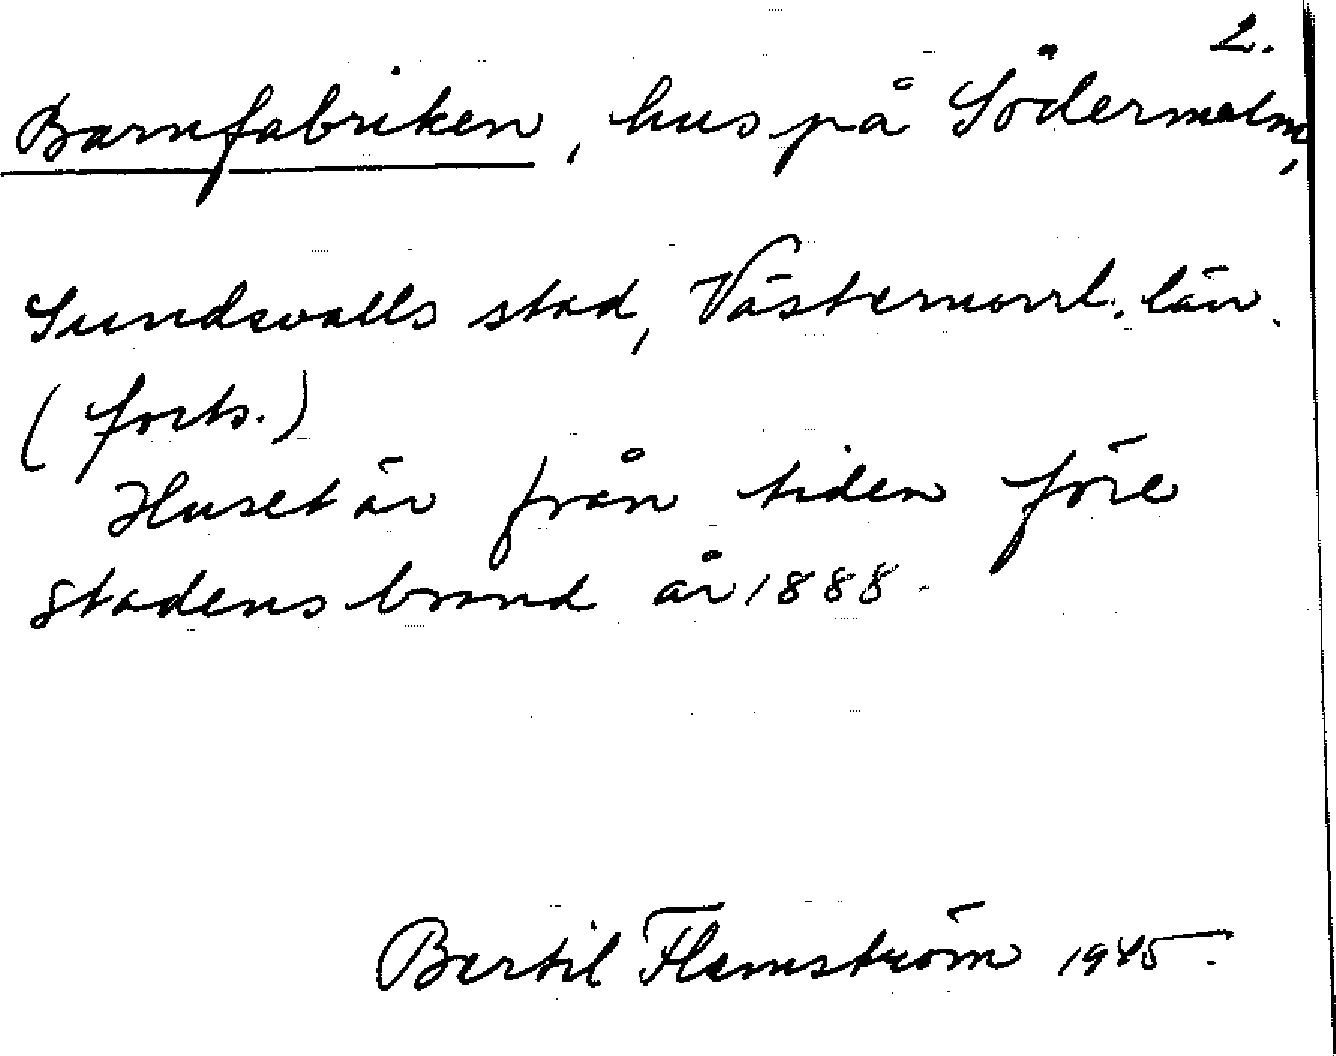 2.
Barnfabriken, hus på Södermalm,
Sundsvalls stad, Västernorrl. län.
(forts.)
Huset är från tiden före
stadens brand år 1888.
Bertil Flemström 1945.